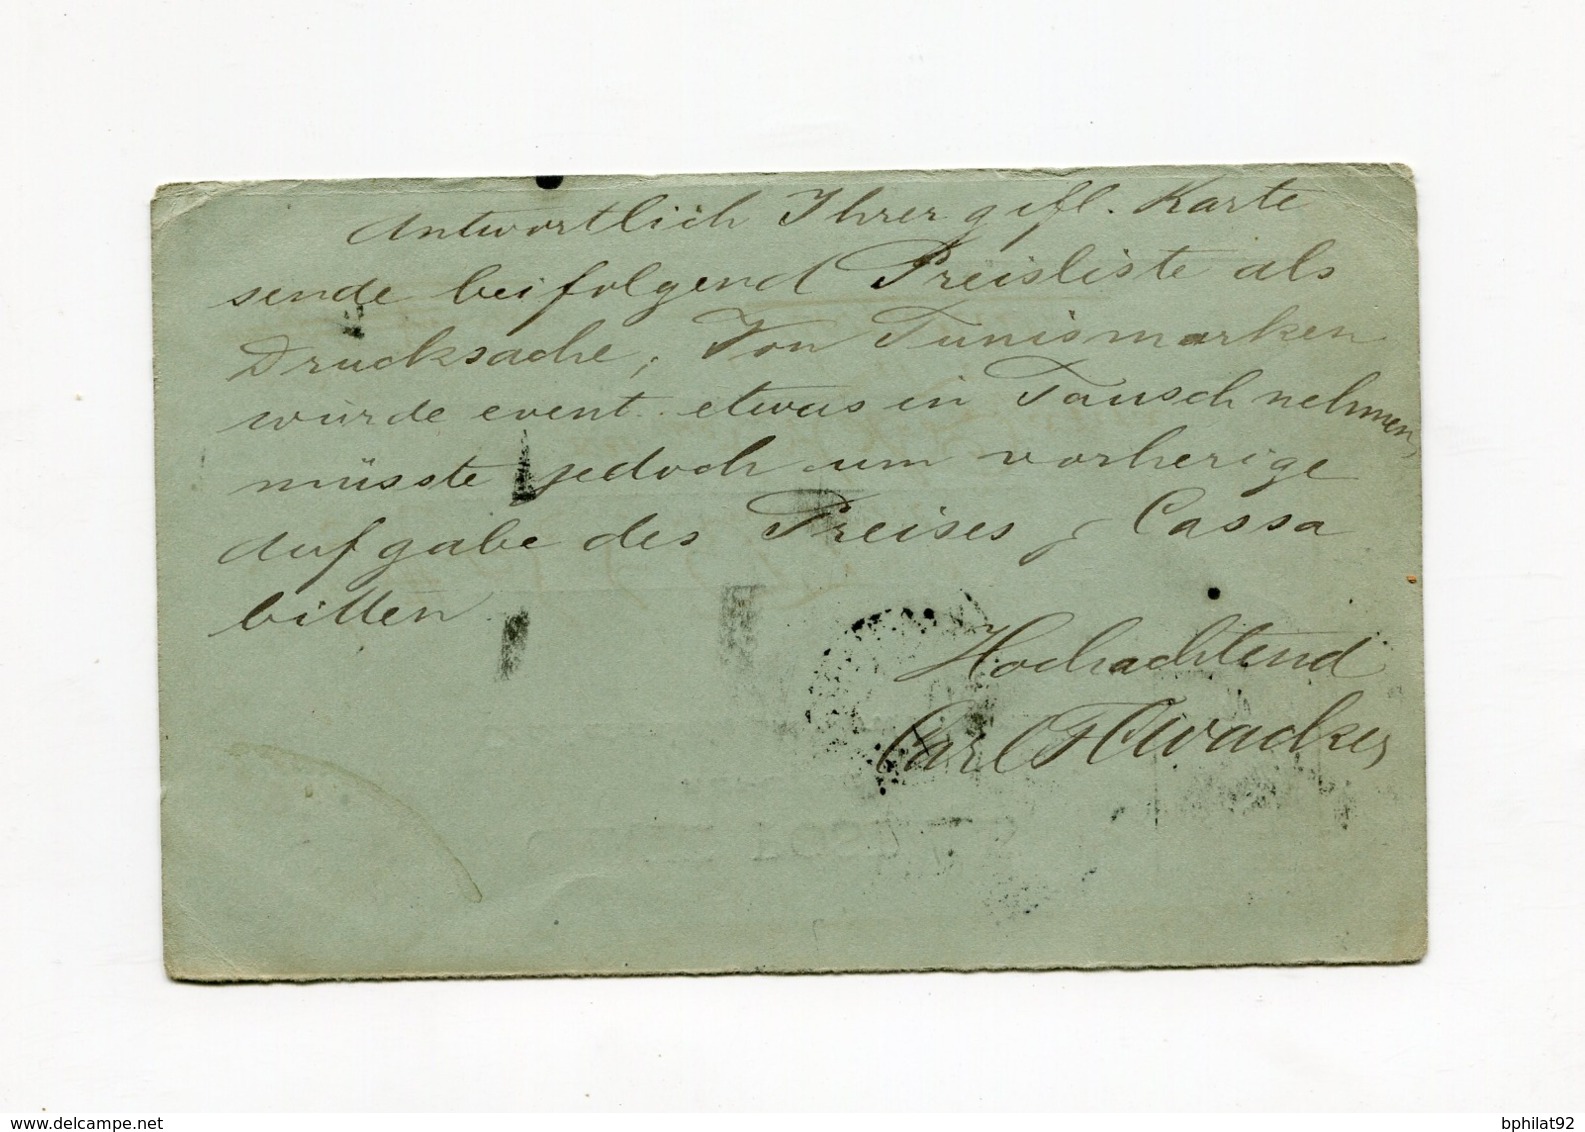 Antwortlich Ihrer gefl. Karte
sende beifolgend Preisliste als
Drucksache, Von Tunismarken
würde event. etwas in Tausch nehmen,
müsste jedoch um vorherige
Aufgabe des Preises p Cassa
bitten.
Hochachtend
Carl
delcampe.net
bphilat92